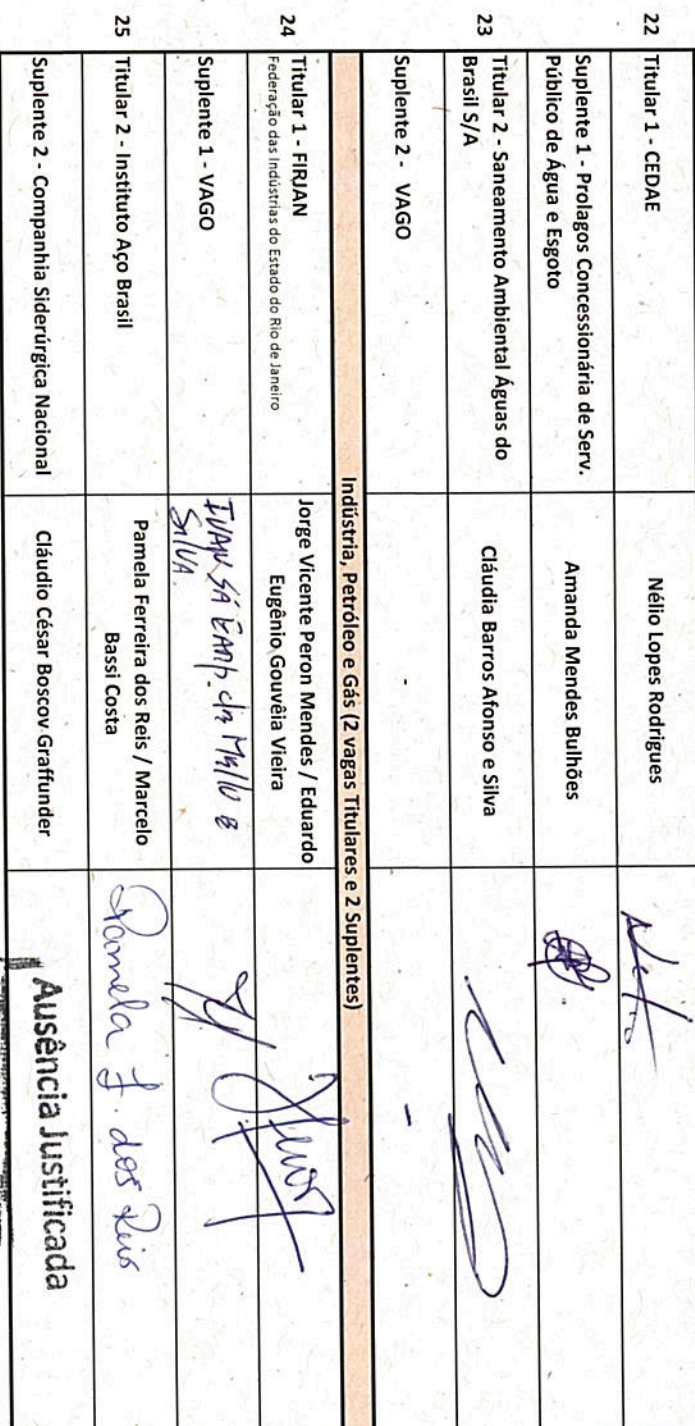 22
Titular 1 - CEDAE
Nélio Lopes Rodrigues
Suplente 1 - Prolagos Concessionária de Serv.
Púbico de Água e Esgoto
Amanda Mendes Bulhões
23
Titular 2 - Saneamento Ambiental Águas do
Brasil S/A
Cláudia Barros Afonso e Silva
Suplente 2 - VAGO
-
-
Indústria, Petróleo e Gás (2 vagas Titulares e 2 Suplentes)
24
Titular 1 - FIRJAN
Federação das Indústrias do Estado do Rio de Janeiro
Jorge Vicente Peron Mendes / Eduardo
Eugênio Gouvêia Vieira
Suplente 1 - VAGO
IVAN SÁ EARP. de Mello e
SILVA.
25
Titular 2 - Instituto Aço Brasil
Pamela Ferreira dos Reis / Marcelo
Bassi Costa
Pamela F. dos Reis
Suplente 2 - Companhia Siderúrgica Nacional
Cláudio César Boscov Graffunder
Ausência Justificada